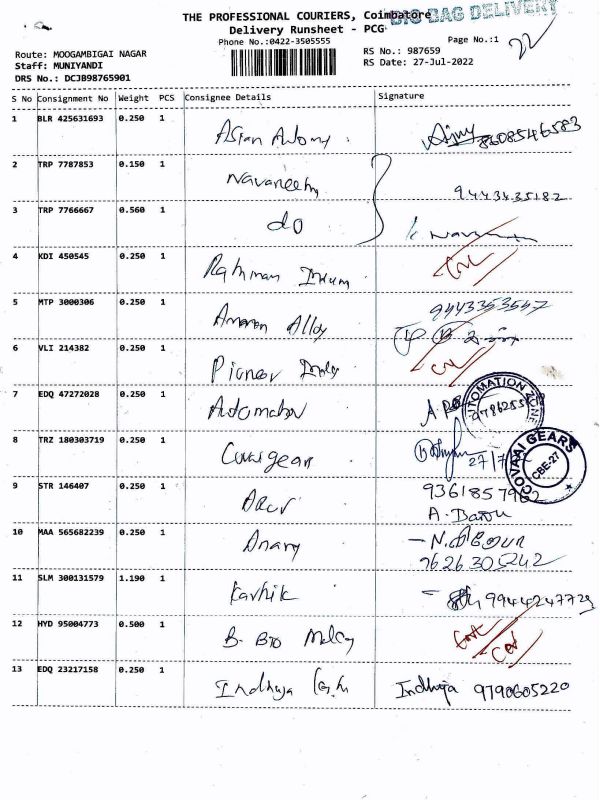 THE PROFESSIONAL COURIERS, Coimbatore
BIG BAG DELIVERY
Delivery Runsheet - PCG
Phone No.:0422-3505555
Page No.:1
22
Route: MOOGAMBIGAI NAGAR
RS No.: 987659
Staff: MUNIYANDI
RS Date: 27-Jul-2022
DRS No.: DCJB98765901
S No Consignment No Weight PCS Consignee Details Signature
1 BLR 425631693 0.250 1 Asian Automy Ajay 8608546583
2 TRP 7787853 0.150 1 Navaneetha 9443435182
3 TRP 7766667 0.560 1 do
4 KDI 450545 0.250 1 Rahman
5 MTP 3000306 0.250 1 Alloy 9443353547
6 VLI 214382 0.250 1 Pioneer
7 EDQ 47272028 0.250 1 Automation
AUTOMATION ZONE
8 TRZ 180303719 0.250 1
COVAAI GEARS
CBE-27
9 STR 146407 0.250 1 9361857962
A. Babu
10 MAA 565682239 0.250 1 Anany
7626305242
11 SLM 300131579 1.190 1 Karthik 9944247729
12 HYD 95004773 0.500 1 B. Bio
13 EDQ 23217158 0.250 1 Indhuja Indhuja 9790605220